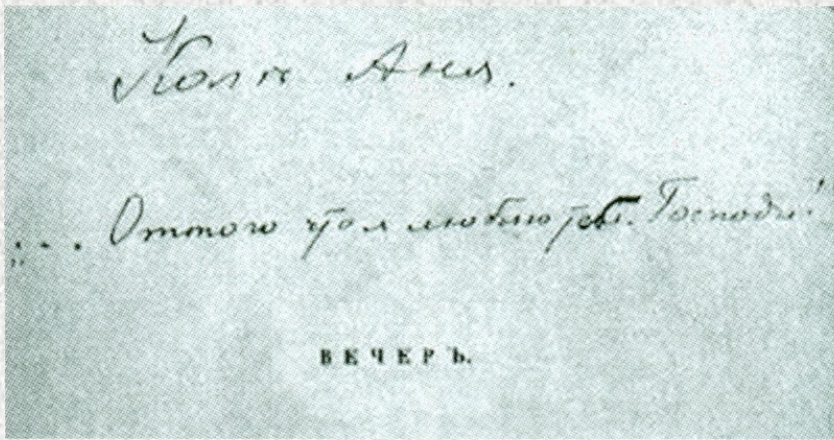 Коля Аня.
„... Оттого что я люблю тебя. Господи!
ВЕЧЕРЪ.